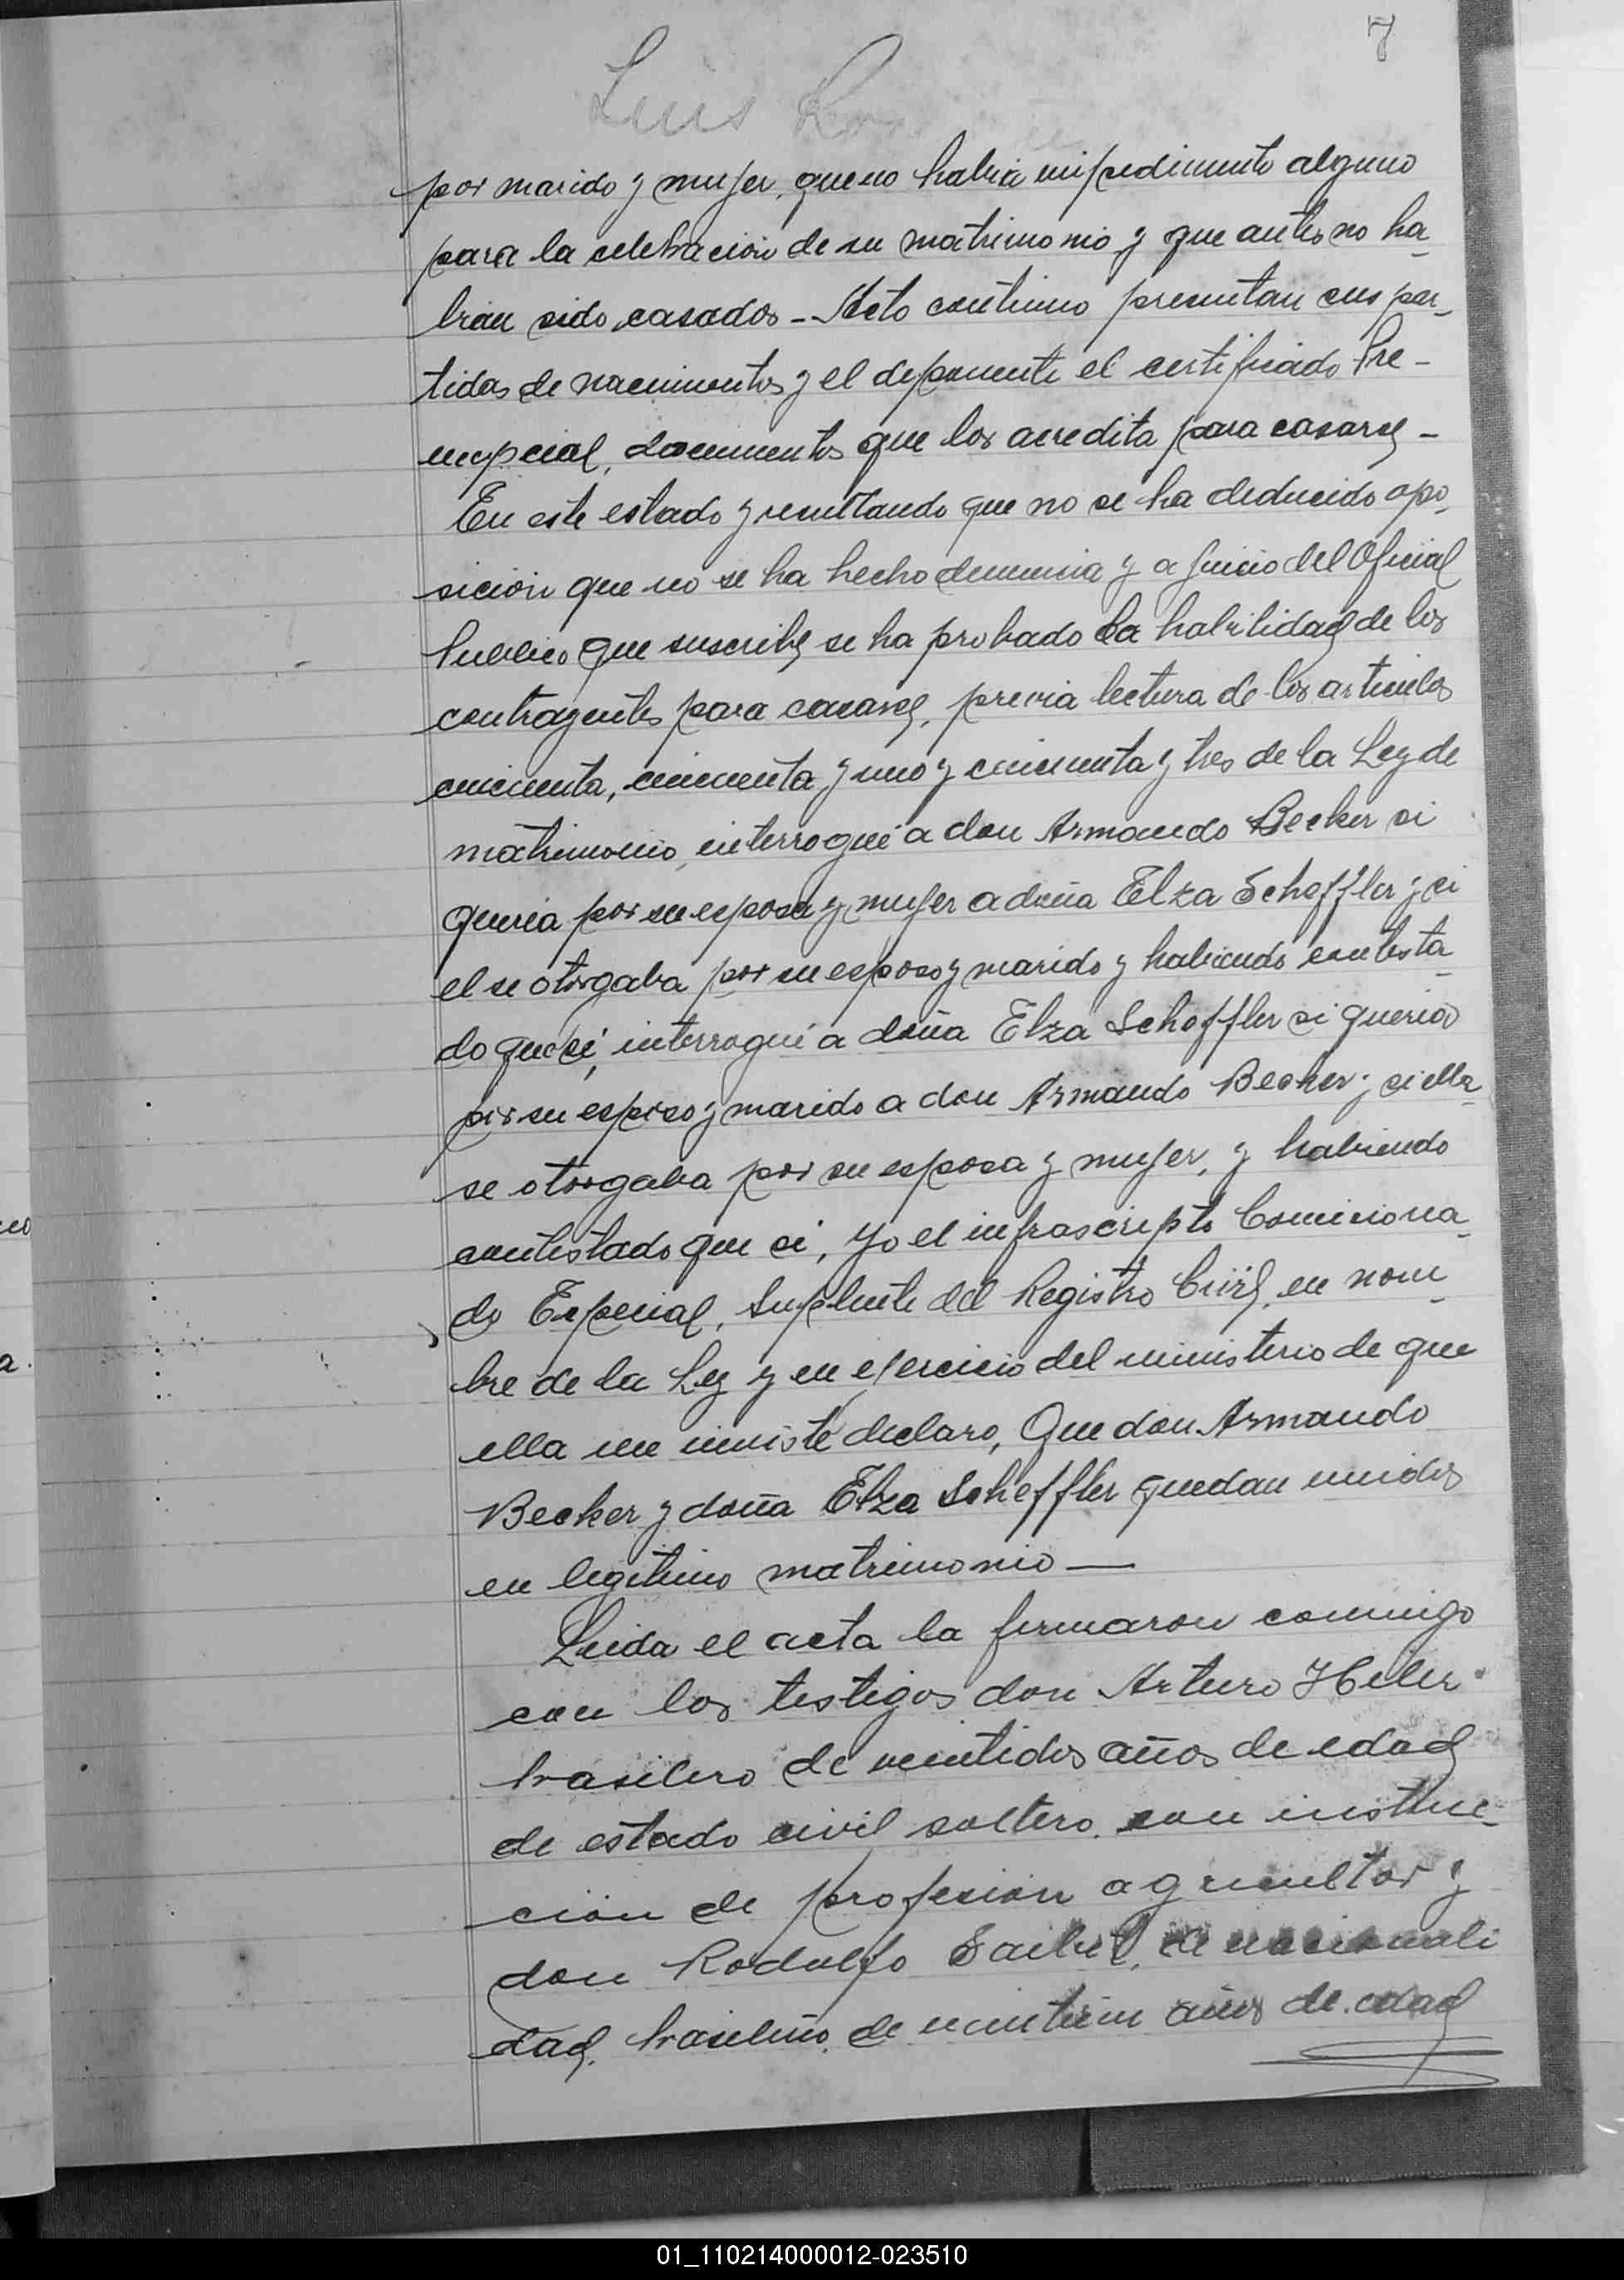 7
Luis
por marido y mujer, que no habia impedimento alguno
para la celebracion de su matrimonio y que antes no ha-
brian sido casados - Acto continuo presentan sus par-
tidas de nacimientos y el deponente el certificado Pre-
nupcial, documentos que los acredita para casarse -
En este estado y resultando que no se ha deducido opo-
sicion que no se ha hecho denuncia y a juicio del Oficial
Publico que suscribe se ha probado la habilidad de los
contrayentes para casarse, previa lectura de los articulos
cincuenta, cincuenta y uno y cincuenta y tres de la Ley de
matrimonio, interrogué a don Armando Becker si
queria por su esposa y mujer a doña Elza Scheffler y si
el se otorgaba por su esposo y marido y habiendo contesta-
do que si, interrogué a doña Elza Scheffler si queria
por su esposo y marido a don Armando Becker y si ella
se otorgaba por su esposa y mujer, y habiendo
contestado que si, yo el infrascripto Comiciona-
do Especial, Suplente del Registro Civil, en nom-
bre de la Ley y en ejercicio del ministerio de que
ella me inviste declaro, Que don Armando
Becker y doña Elza Scheffler quedan unidos
en legitimo matrimonio —
Leida el acta la firmaron conmigo
con los testigos don Arturo
brasilero de veintidos años de edad
de estado civil soltero, con instruc-
cion de profesion agricultor y
don Rodulfo de nacionali
dad, brasileño, de años de edad
no
a.
01_110214000012-023510